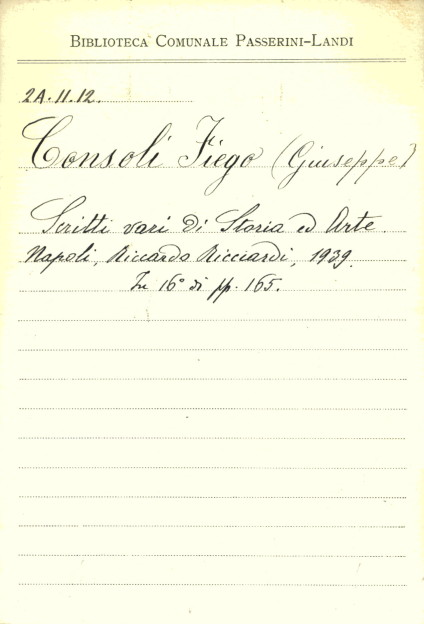 BIBLIOTECA COMUNALE PASSERINI-LANDI
2A.11.12.
Consoli Fiego (Giuseppe)
Scritti vari di Storia ed Arte.
Napoli, Riccardo Ricciardi, 1939.
In 16° di pp. 165.